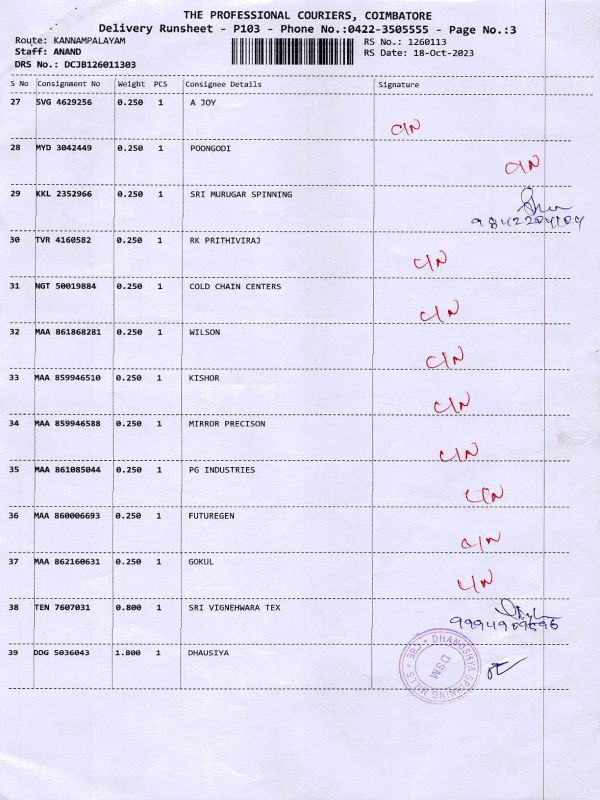 THE PROFESSIONAL COURIERS, COIMBATORE
Delivery Runsheet - P103 - Phone No.:0422-3505555 - Page No.:3
Route: KANNAMPALAYAM RS No.: 1260113
Staff: ANAND RS Date: 18-Oct-2023
DRS No.: DCJB126011303
S No Consignment No Weight PCS Consignee Details Signature
27 SVG 4629256 0.250 1 A JOY
C/N
28 MYD 3042449 0.250 1 POONGODI
C/N
29 KKL 2352966 0.250 1 SRI MURUGAR SPINNING
30 TVR 4160582 0.250 1 RK PRITHIVIRAJ
C/N
31 NGT 50019884 0.250 1 COLD CHAIN CENTERS
C/N
32 MAA 861868281 0.250 1 WILSON
C/N
33 MAA 859946510 0.250 1 KISHOR
C/N
34 MAA 859946588 0.250 1 MIRROR PRECISON
C/N
35 MAA 861085044 0.250 1 PG INDUSTRIES
C/N
36 MAA 860006693 0.250 1 FUTUREGEN
C/N
37 MAA 862160631 0.250 1 GOKUL
C/N
38 TEN 7607031 0.800 1 SRI VIGNEHWARA TEX
39 DDG 5036043 1.800 1 DHAUSIYA
DHANUSHYA SPINNING MILLS * CBE *
DSM